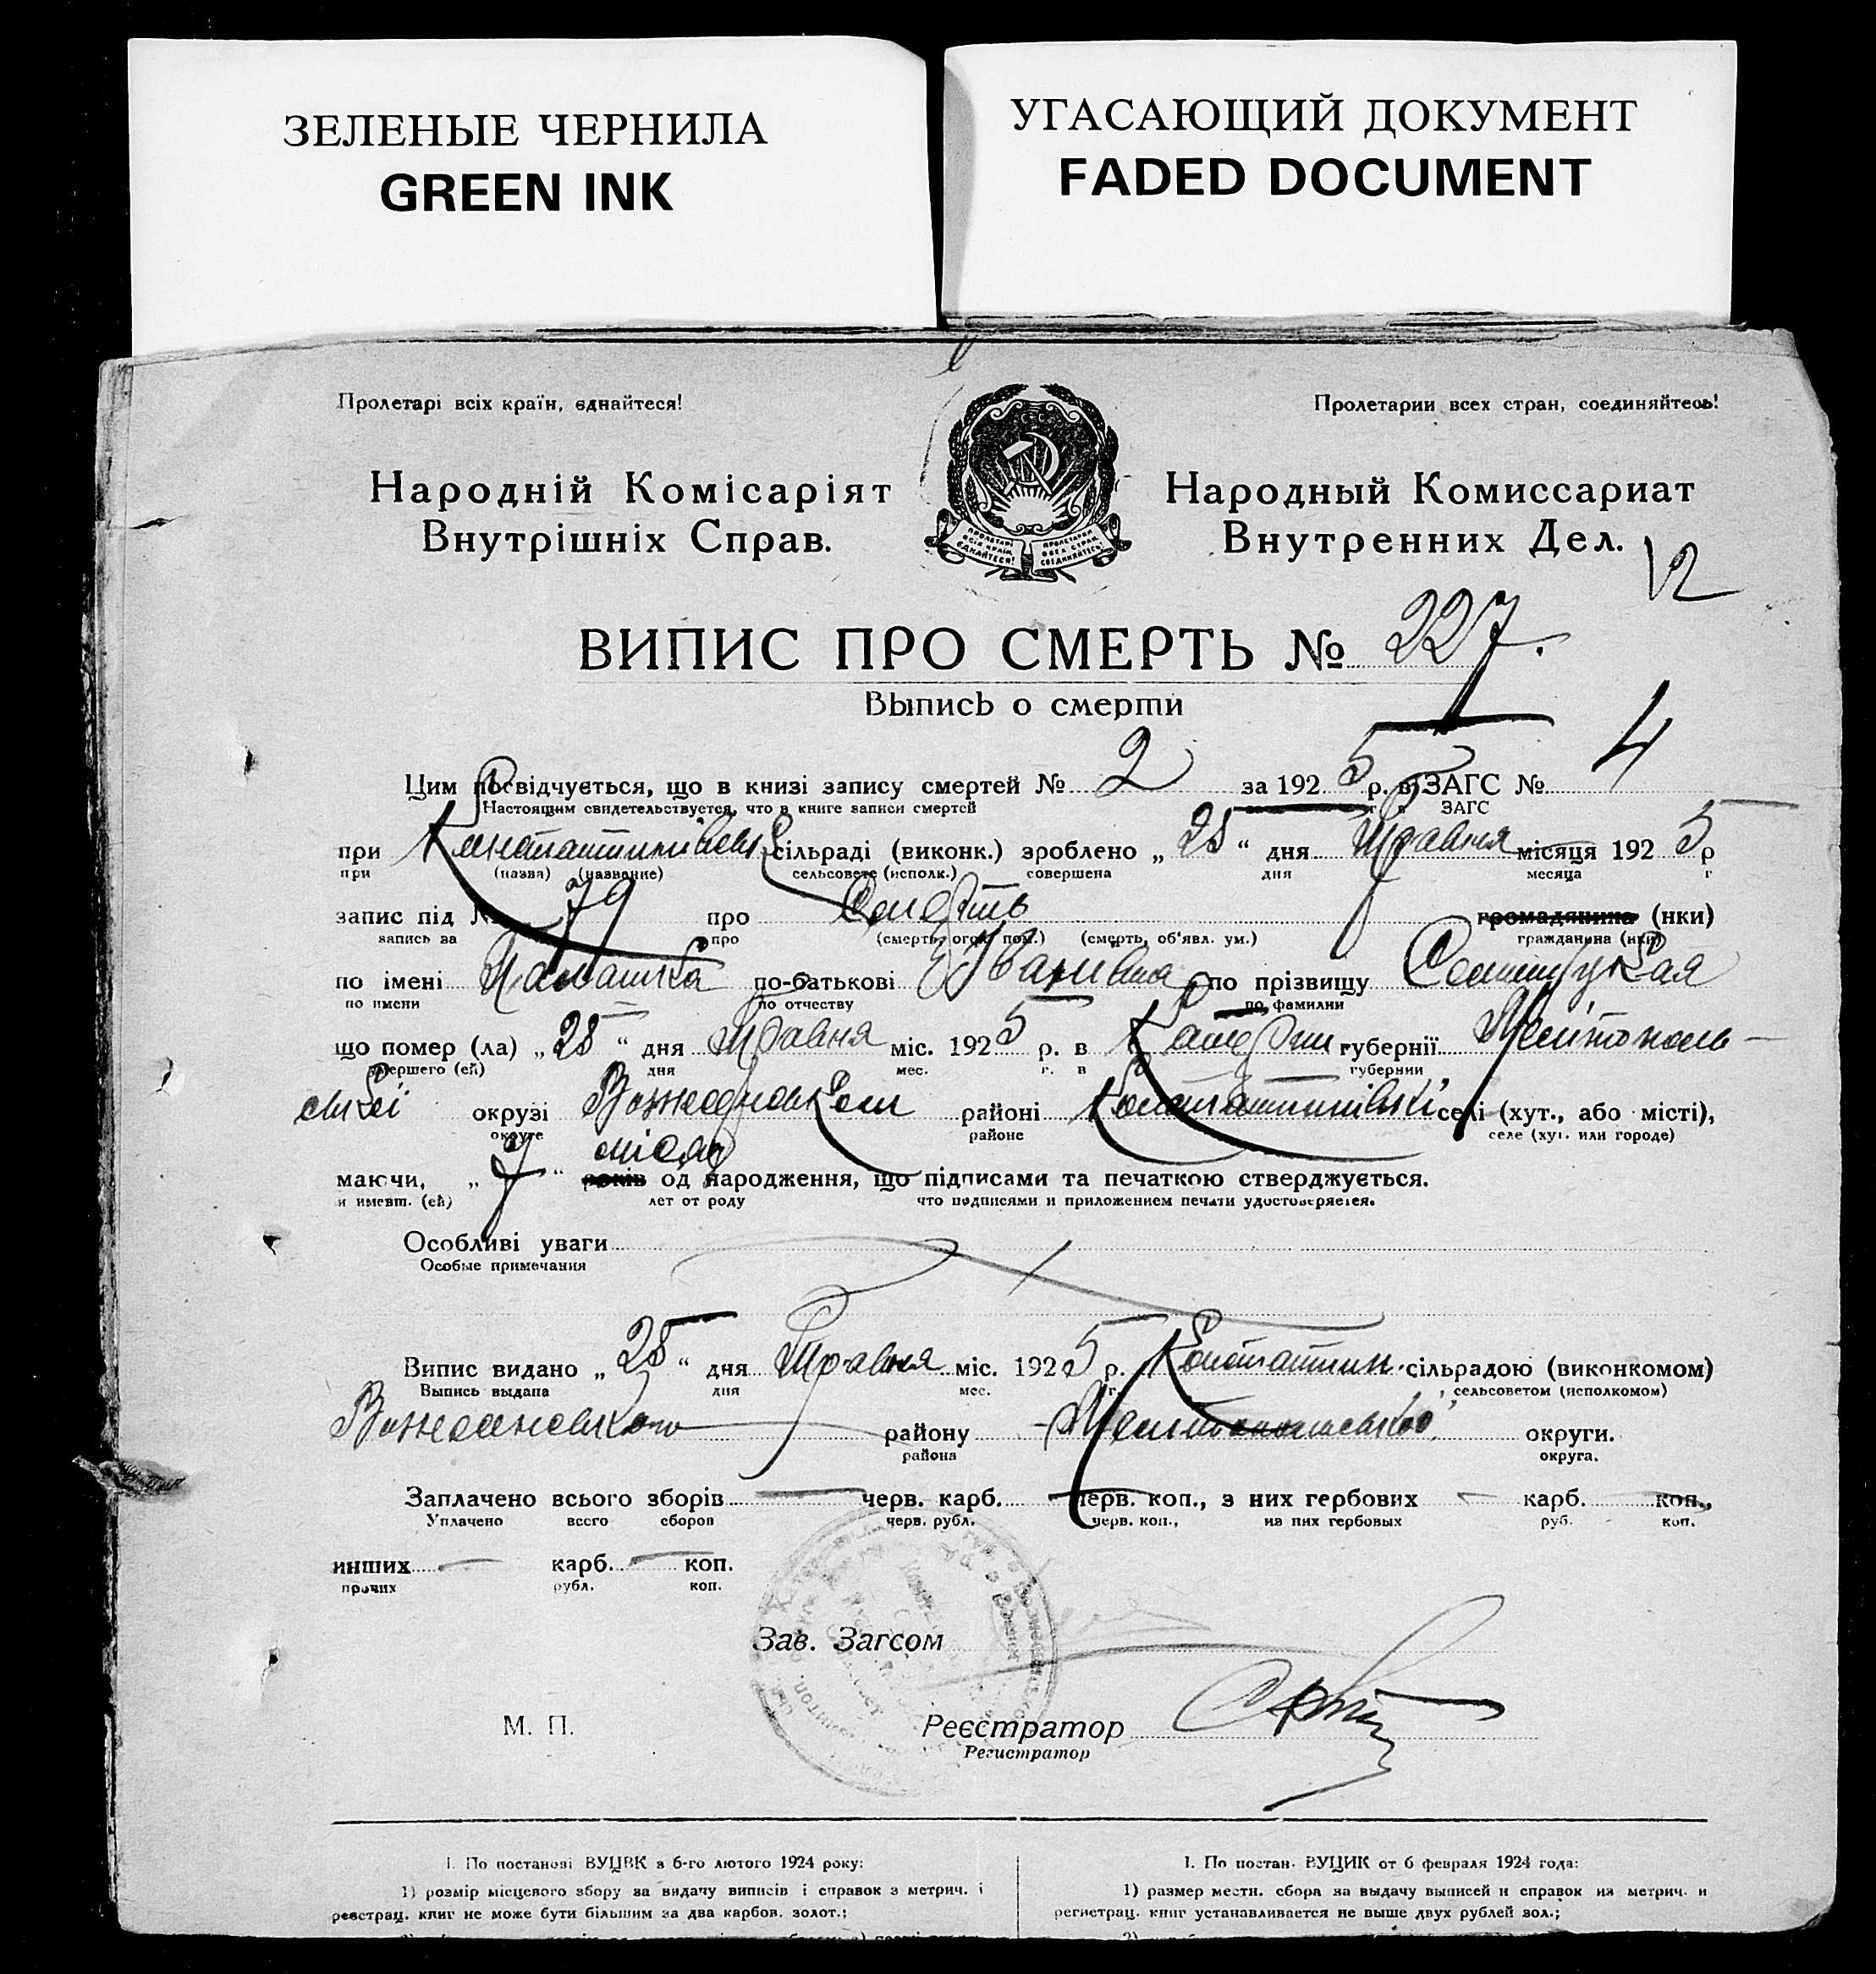 ЗЕЛЕНЫЕ ЧЕРНИЛА
GREEN INK
УГАСАЮЩИЙ ДОКУМЕНТ
FADED DOCUMENT
Пролетарі всіх країн, єднайтеся!
Пролетарии всех стран, соединяйтесь!
Народній Комісаріят
Внутрішніх Справ.
Народный Комиссариат
Внутренних Дел.
ПРОЛЕТАРІ ВСІХ КРАЇН ЄДНАЙТЕСЯ!
ПРОЛЕТАРИИ ВСЕХ СТРАН СОЕДИНЯЙТЕСЬ!
12
ВИПИС ПРО СМЕРТЬ № 227.
Выпись о смерти
Цим посвідчується, що в книзі запису смертей № 2 за 1925 р. в ЗАГС № 4
Настоящим свидетельствуется, что в книге записи смертей г. в ЗАГС
при сільраді (виконк.) зроблено „28“ дня Травня місяця 1925 р
при (назва) (название) сельсовете (исполк.) совершена дня месяца г
запис під № 79 про Смерть громадянина (нки)
запись за про (смерть, огол. пом.) (смерть, об'явл. ум.) гражданина (нки)
по імені Палашка по-батькові Іванівна по прізвищу
по имени по отчеству по фамилии
що помер (ла) „28“ дня Травня міс. 1925 р. в губернії Меліtополь-
умершего (ей) дня мес. г. в губернии
ській окрузі районі Константинівці селі (хут., або місті),
округе районе селе (хут. или городе)
місяц
маючи, „7“ років од народження, що підписами та печаткою стверджується.
и имевш. (ей) лет от роду что подписями и приложением печати удостоверяется.
Особливі уваги
Особые примечания
Випис видано „28“ дня Травня міс. 1925 р. Константин. сільрадою (виконкомом)
Выпись выдана дня мес. г. сельсоветом (исполкомом)
району округи.
района округа.
Заплачено всього зборів черв. карб. черв. коп., з них гербових карб. коп.,
Уплачено всего сборов черв. рубл. черв. коп., из них гербовых руб. коп.
инших карб. коп.
прочих рубл. коп.
Зав. Загсом
М. П.
Реєстратор
Регистратор
I. По постанові ВУЦВК з 6-го лютого 1924 року:
1) розмір місцевого збору за видачу виписів і справок з метрич. і
реєстрац. книг не може бути більшим за два карбов. золот.;
I. По постан. ВУЦИК от 6 февраля 1924 года:
1) размер местн. сбора за выдачу выписей и справок из метрич. и
регистрац. книг устанавливается не выше двух рублей зол.;